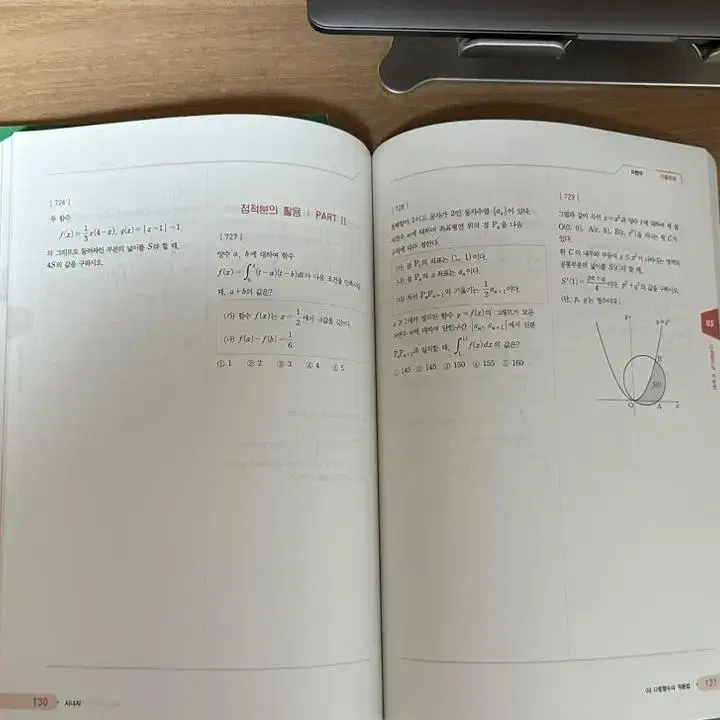 | 726 |
두 함수
f(x)=1/3 x(4-x), g(x)=|x-1|-1
의 그래프로 둘러싸인 부분의 넓이를 S라 할 때,
4S의 값을 구하시오.
정적분의 활용 | PART II
| 727 |
양수 a, b에 대하여 함수
f(x)=∫₀ˣ (t-a)(t-b)dt가 다음 조건을 만족시킬
때, a+b의 값은?
(가) 함수 f(x)는 x=1/2에서 극값을 갖는다.
(나) f(a)-f(b)=1/6
① 1 ② 2 ③ 3 ④ 4 ⑤ 5
130 시너지
| 728 |
첫째항이 1이고 공차가 2인 등차수열 {aₙ}이 있다.
자연수 n에 대하여 좌표평면 위의 점 Pₙ을 다음
규칙에 따라 정한다.
(가) 점 P₁의 좌표는 (1, 1)이다.
(나) 점 Pₙ의 x좌표는 aₙ이다.
(다) 직선 PₙPₙ₊₁의 기울기는 1/2 aₙ₊₁이다.
x≥1에서 정의된 함수 y=f(x)의 그래프가 모든
자연수 n에 대하여 닫힌구간 [aₙ, aₙ₊₁]에서 선분
PₙPₙ₊₁과 일치할 때, ∫₁¹¹ f(x)dx의 값은?
① 140 ② 145 ③ 150 ④ 155 ⑤ 160
| 729 |
그림과 같이 곡선 y=x²과 양수 t에 대하여 세 점
O(0, 0), A(t, 0), B(t, t²)을 지나는 원 C가
있다.
원 C의 내부와 부등식 y≤x²이 나타내는 영역의
공통부분의 넓이를 S(t)라 할 때,
S'(1)=(pπ+q)/4이다. p²+q²의 값을 구하시오.
(단, p, q는 정수이다.)
y
y=x²
B
S(t)
O
A
x
03
03 다항함수의 적분법 131